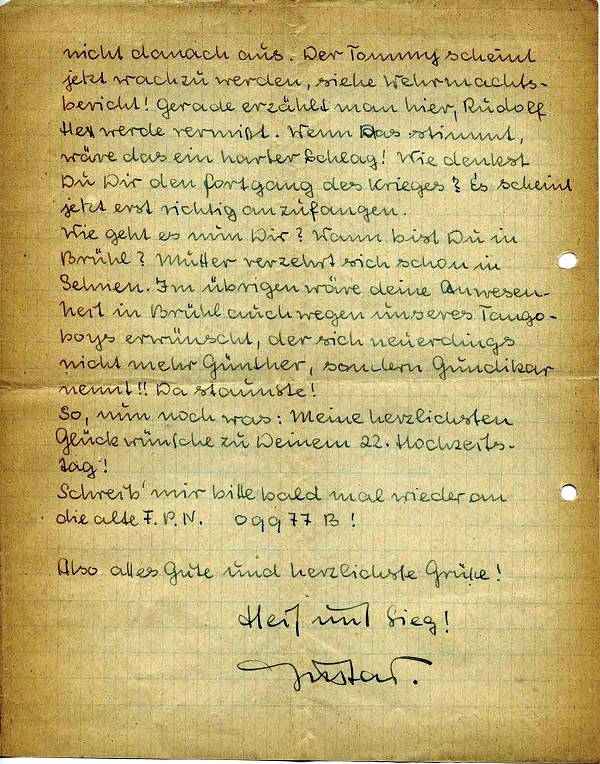 nicht danach aus. Der Tommy scheint
jetzt wach zu werden, siehe Wehrmachts-
bericht! Gerade erzählt man hier, Rudolf
Heß werde vermißt. Wenn das stimmt,
wäre das ein harter Schlag! Wie denkst
Du Dir den Fortgang des Krieges? Es scheint
jetzt erst richtig anzufangen.
Wie geht es nun Dir? Wann bist Du in
Brühl? Mutter verzehrt sich schon in
Sehnen. Im übrigen wäre deine Anwesen-
heit in Brühl auch wegen unseres Tango-
boys erwünscht, der sich neuerdings
nicht mehr Günther, sondern Gundikar
nennt!! Da staunste!
So, nun noch was: Meine herzlichsten
Glückwünsche zu Deinem 22. Hochzeits-
tag!
Schreib' mir bitte bald mal wieder an
die alte F.P.N. 09977 B!
Also alles Gute und herzlichste Grüße!
Heil und Sieg!
Gustav.